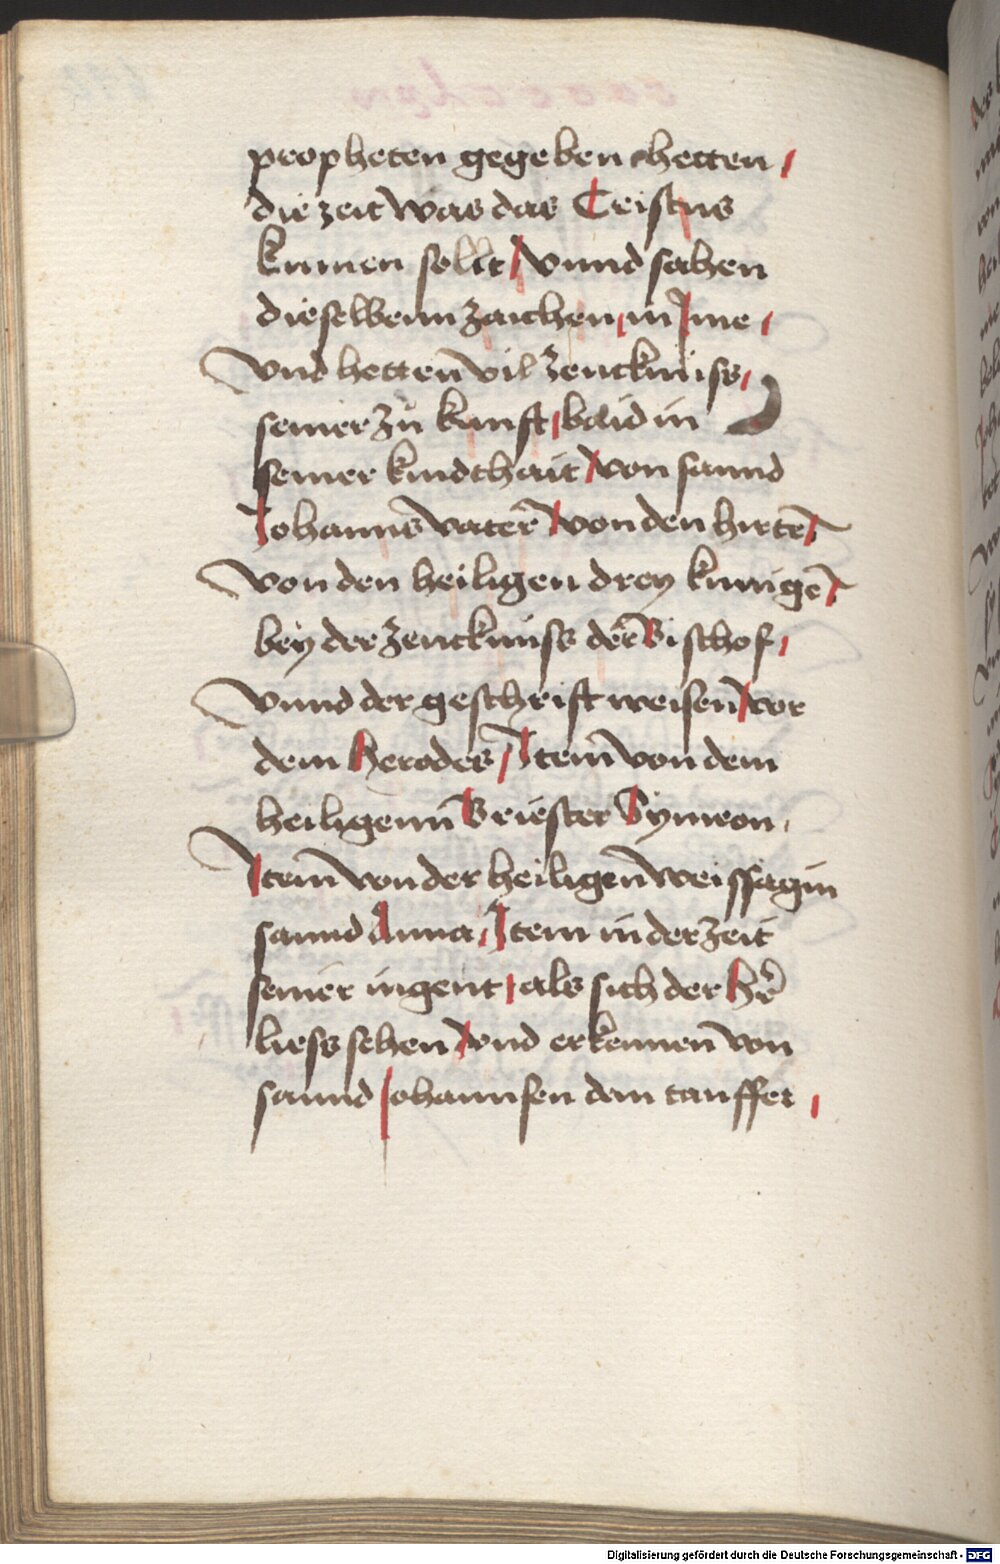 propheten gegeben hetten
die zeit was das Cristus
kumen sollt vnnd sahen
dieselbenn zaichen in Ime
vnd hetten vil zeucknüss
seiner zů kunft baid in
seiner kindthait von sannd
Johanns vater von den hirten
von den heiligen drey kunigen
bey der zeucknüss der Bischof
vnnd der geschrift weisen vor
dem Herodes Item von dem
heiligenn Briester Symeon
Item von der heiligen weissagin
sannd Anna Item in der zeit
seiner iugent als sich der Hr̄
liess sehen vnd erkennen von
sannd Johannsen dem tauffer
Digitalisierung gefördert durch die Deutsche Forschungsgemeinschaft - DFG